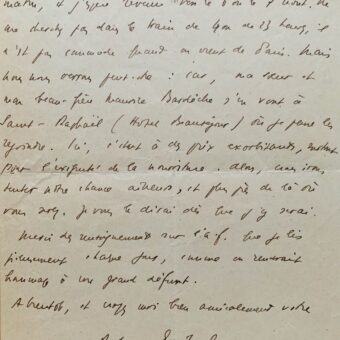 matin, et j'espère revenir vers le 5 ou le 7 août. Ne
me cherchez pas dans le train de Lyon de 13 heures, il
n'est pas commode quand on vient de Paris. Mais
nous nous verrons peut-être : car, ma soeur et
mon beau-frère Maurice Bardèche s'en vont à
Saint-Raphaël (Hôtel Beauséjour) où je pense les
rejoindre. Ici, c'était à des prix exorbitants, surtout
pour l'exiguité de la nourriture. Alors, nous irons
tenter notre chance ailleurs, et plus près de là où
vous serez. Je vous le dirai dès que j'y serai.
Merci des renseignements sur l'a.f. que je lis
pieusement chaque jour, comme on rendrait
hommage à un grand défunt.
A bientôt, et croyez moi bien amicalement vôtre